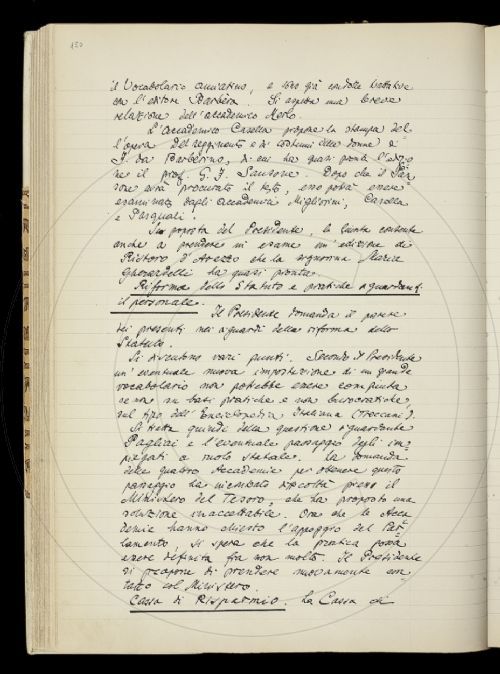 150
il Vocabolario amiatino, e sono già condotte trattative
con l'editore Barbèra. Si aspetta una breve
relazione dell'accademico Merlo.
L'Accademico Casella propone la stampa del
l'opera del reggimento e di costumi delle donne di
F. da Barberino, di cui ha quasi pronta l'edizio
ne il prof. G. F. Sansone. Dopo che il San
sone avrà procurato il testo, esso potrà essere
esaminato dagli accademici Migliorini, Casella
e Pasquali.
Su proposta del Presidente, la Giunta consente
anche a prendere in esame un'edizione di
Ristoro d'Arezzo che la signorina Maria
Gherardelli ha quasi pronta.
Riforma dello Statuto e pratiche riguardanti
il personale. Il Presidente domanda il parere
dei presenti nei riguardi della riforma dello
Statuto.
Si discutono vari punti. Secondo il Presidente
un'eventuale nuova impostazione di un grande
vocabolario non potrebbe essere compiuta
se non su basi pratiche e non burocratiche,
sul tipo dell'Enciclopedia Italiana (Treccani).
Si tratta quindi della questione riguardante
Pagliai e l'eventuale passaggio degli im-
piegati a ruolo statale. La domanda
delle quattro Accademie per ottenere questo
passaggio ha incontrato difficoltà presso il
Ministero del Tesoro, che ha proposto una
soluzione inaccettabile. Ora che le Acca
demie hanno chiesto l'appoggio del Par-
lamento, si spera che la pratica possa
essere definita fra non molto. Il Presidente
si propone di prendere nuovamente con-
tatto col Ministero.
Cassa di Risparmio. La Cassa di